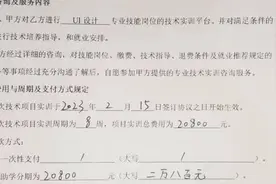 询及服务内容
甲方对乙方进行 UI设计 专业技能岗位的技术实训平台、并对满足条件的
行技术培养指导、和就业安排。
方经过详细的咨询、对技能岗位、缴费、技术指导、退费条件及就业推荐规定的
等事项经过充分沟通了解后,自愿参加甲方提供的专业技术实训咨询服务。
费用与周期及支付方式规定
次技术项目实训于2023年 2 月 15 日签订协议之日开始生效。
次技术项目实训周期为 8 周,项目实训总费用为 20800 元。
次方式:
一次性支付 1 (大写 1
助学分期为 20800 元(大写 二万八百元